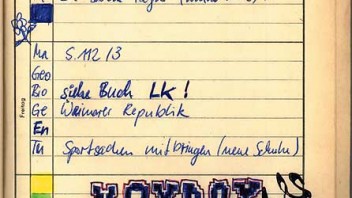 Freitag
Ma S. 112/3
Geo
Bio siehe Buch LK!
Ge Weimarer Republik
En
Tu Sportsachen mitbringen (neue Schuhe)